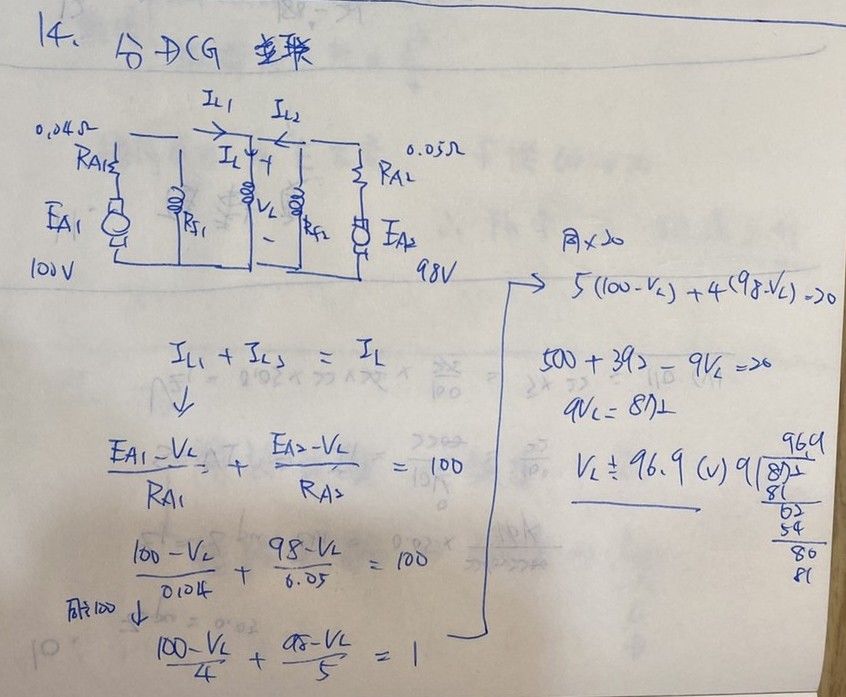 14. 分DCG 並联
IL1 IL2
0.04Ω 0.05Ω
RA1 IL + RA2
EA1 Rf1 VL Rf2 EA2
-
100V 98V
IL1 + IL2 = IL
↓
EA1-VL/RA1 + EA2-VL/RA2 = 100
100-VL/0.04 + 98-VL/0.05 = 100
同÷100 ↓
100-VL/4 + 98-VL/5 = 1
同×20
5(100-VL)+4(98-VL)=20
500+392-9VL=20
9VL=872
VL≒96.9(V)
96.9
9 872
81
62
54
80
81